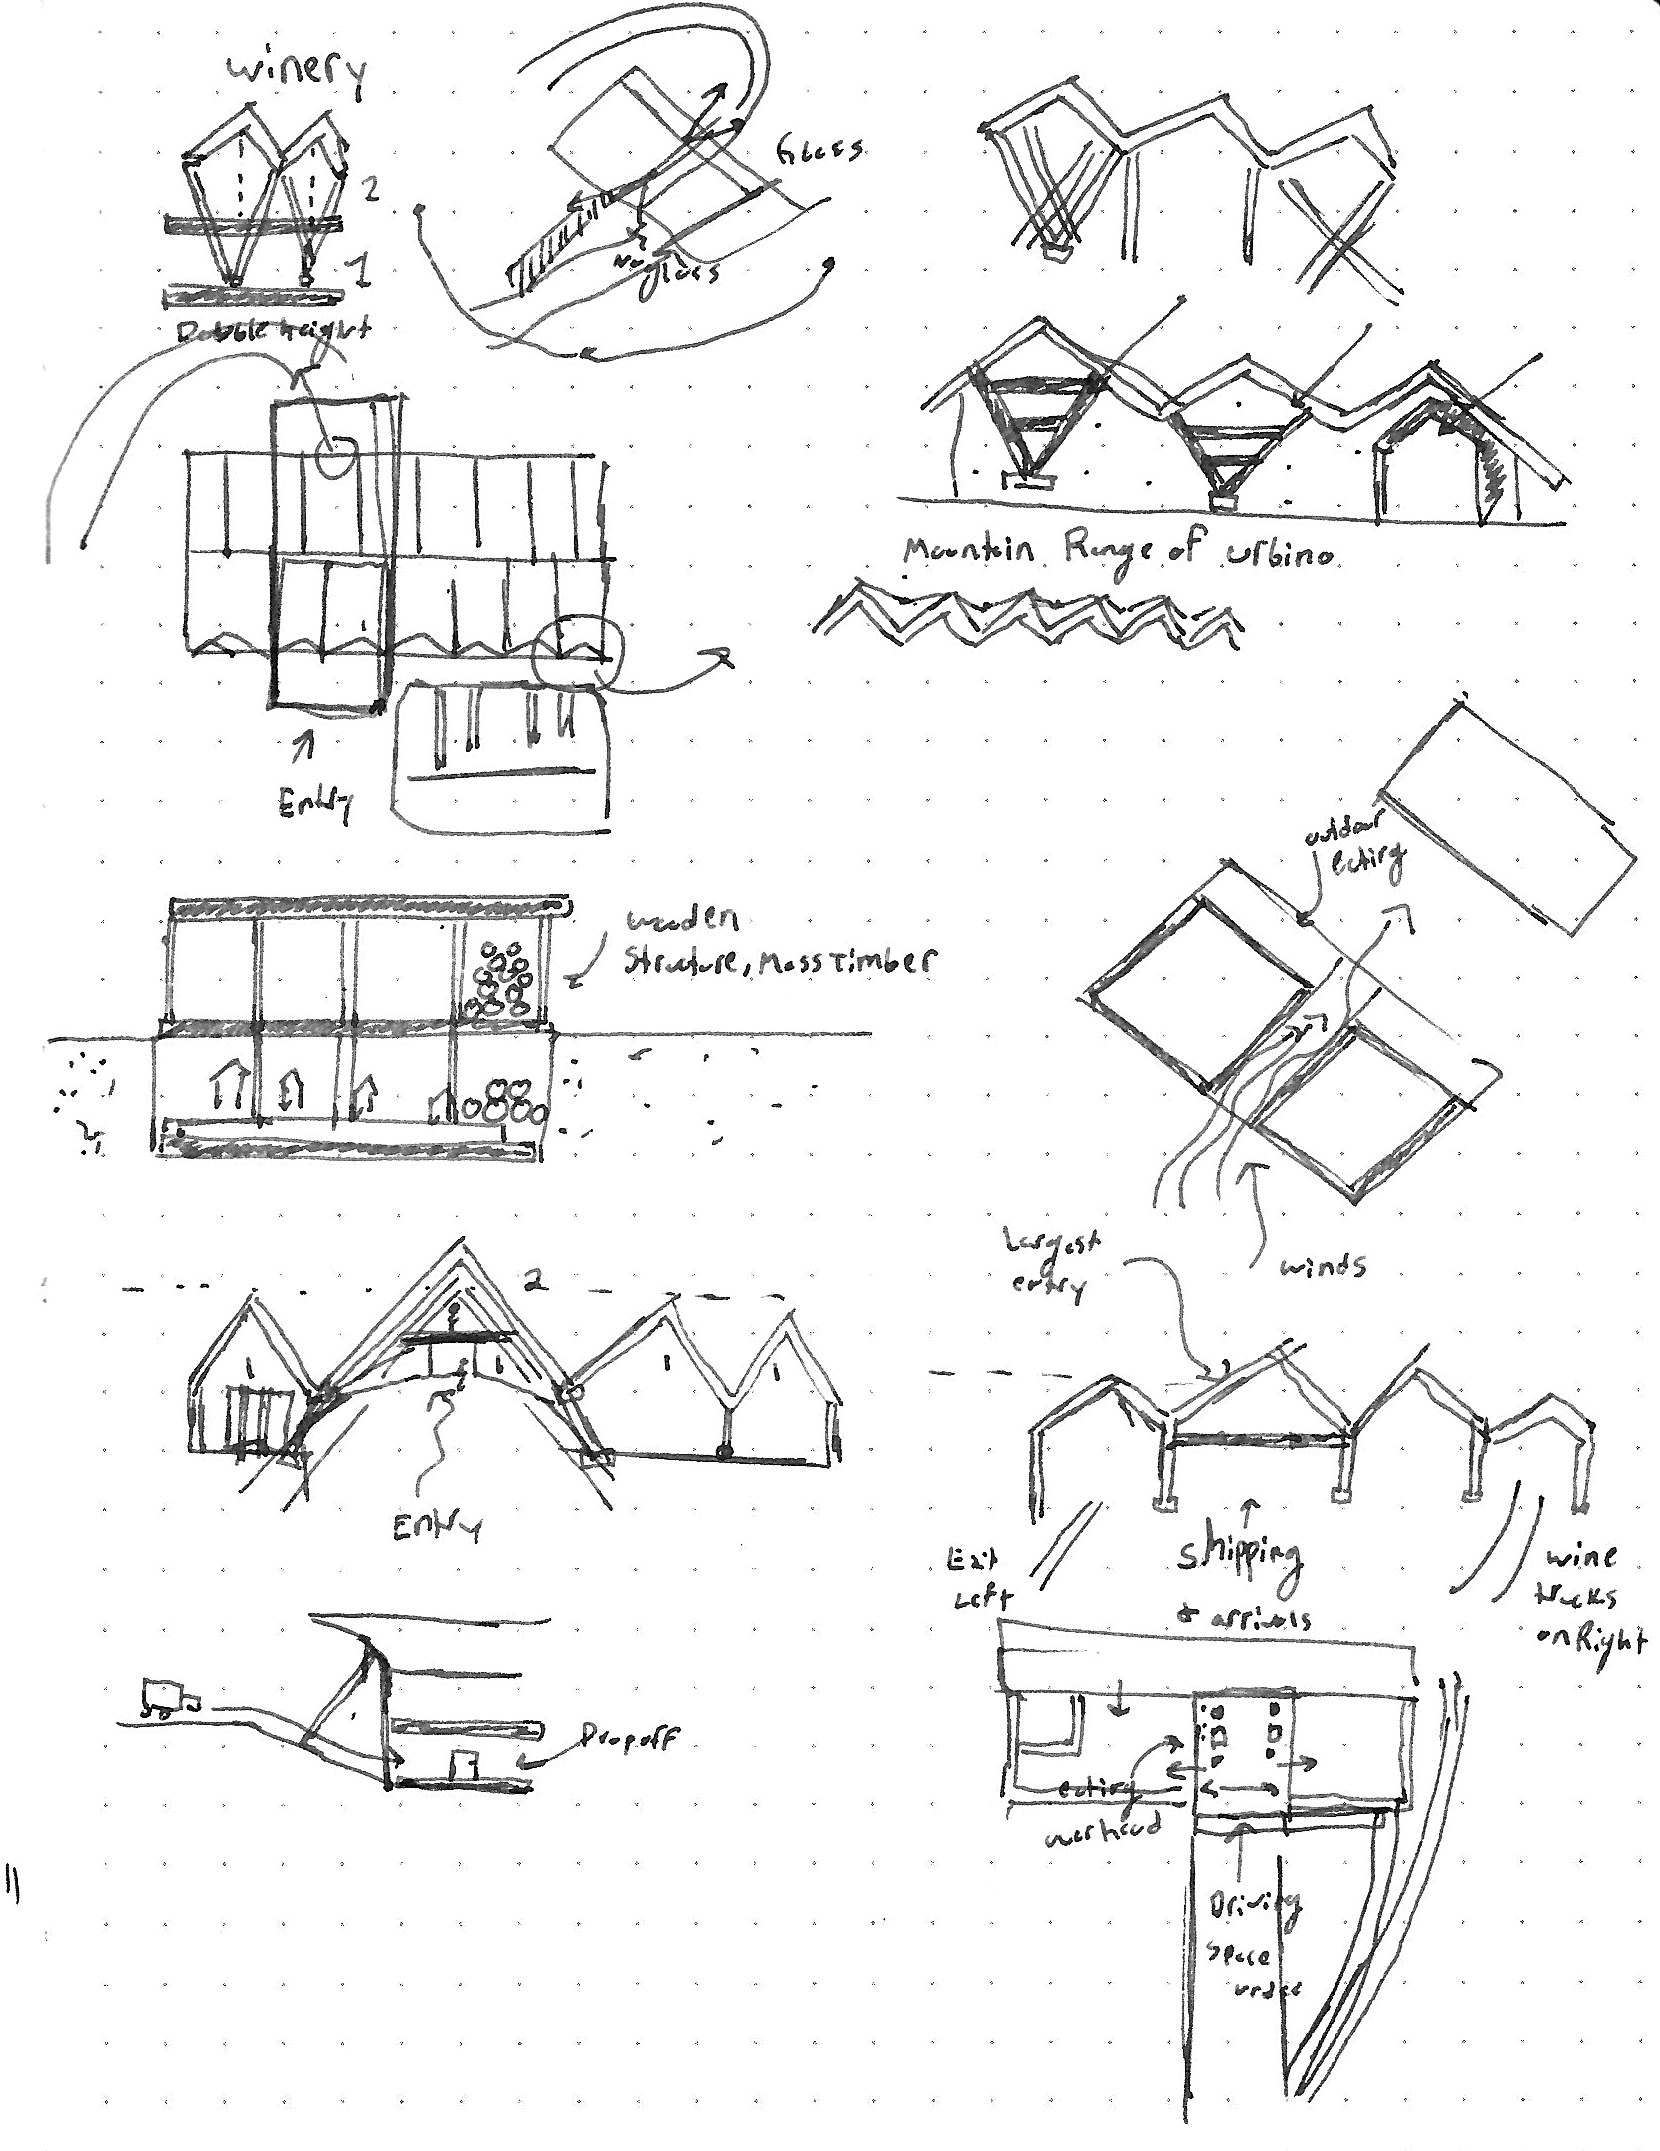 winery
2
1
Dobble height
Glass
No
glass
Mountain Range of Urbino
Entry
wooden
Structure, Mass Timber
outdoor
eating
winds
Largest
entry
2
Entry
Exit
Left
Shipping
& arrivals
wine
trucks
on Right
Dropoff
eating
overhead
Driving
space
under